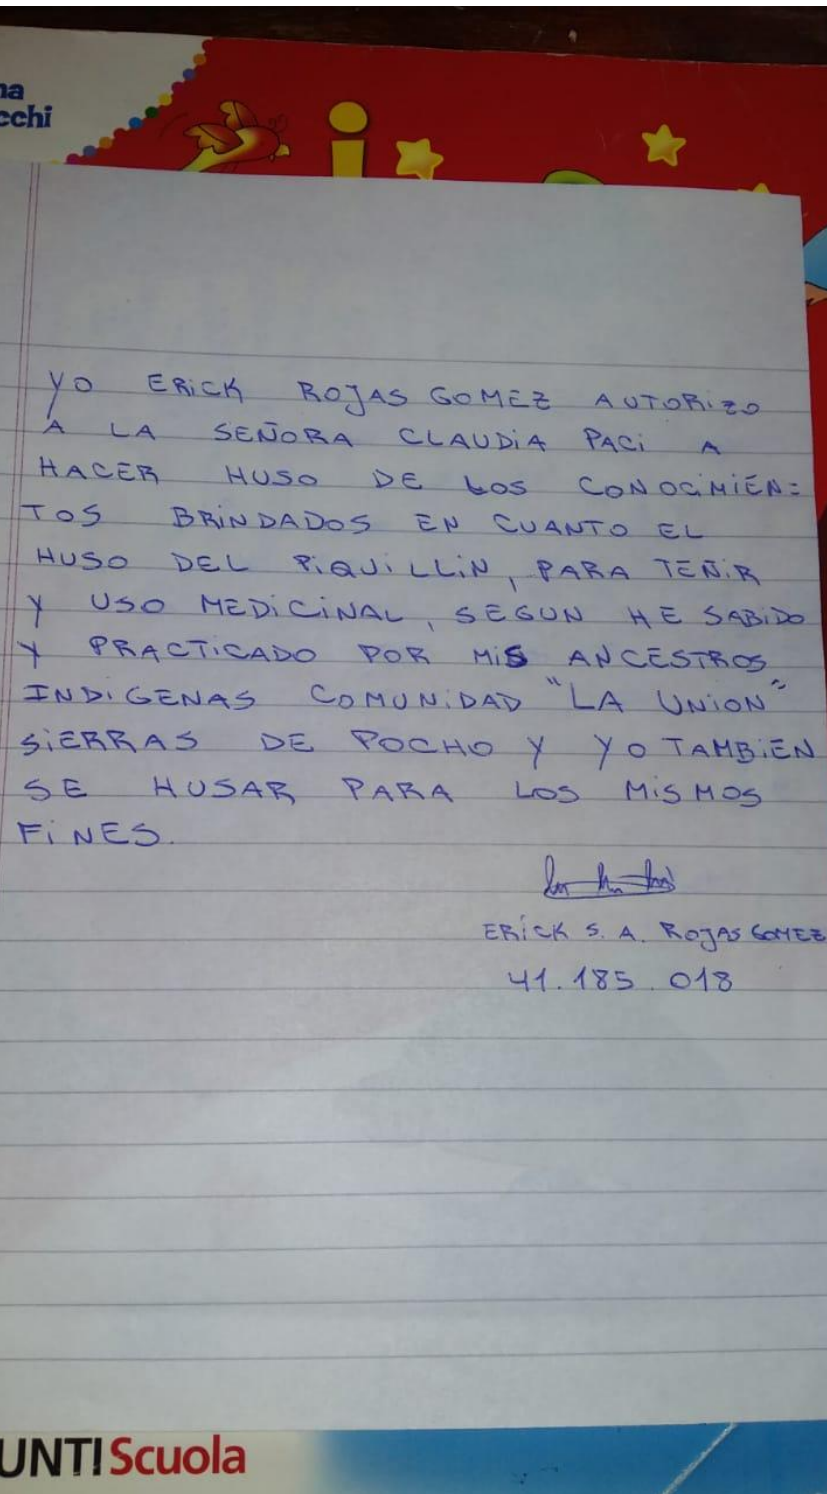 na
cchi
i
YO ERICK ROJAS GOMEZ AUTORIZO
A LA SEÑORA CLAUDIA PACI A
HACER HUSO DE LOS CONOCIMIEN=
TOS BRINDADOS EN CUANTO EL
HUSO DEL PIQUILLIN, PARA TEÑIR
Y USO MEDICINAL, SEGUN HE SABIDO
Y PRACTICADO POR MIS ANCESTROS
INDIGENAS COMUNIDAD "LA UNION"
SIERRAS DE POCHO Y YO TAMBIEN
SE HUSAR PARA LOS MISMOS
FINES.
ERICK S. A. ROJAS GOMEZ
41.185.018
UNTI Scuola